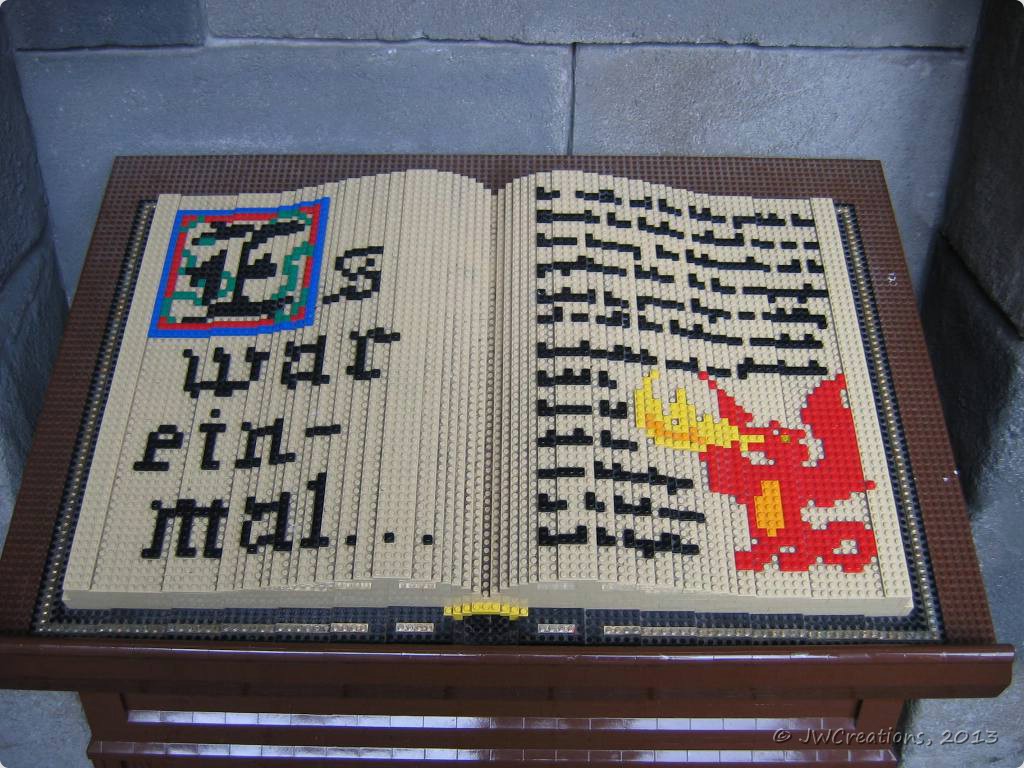 Es
war
ein-
mal...
© JWCreations, 2013